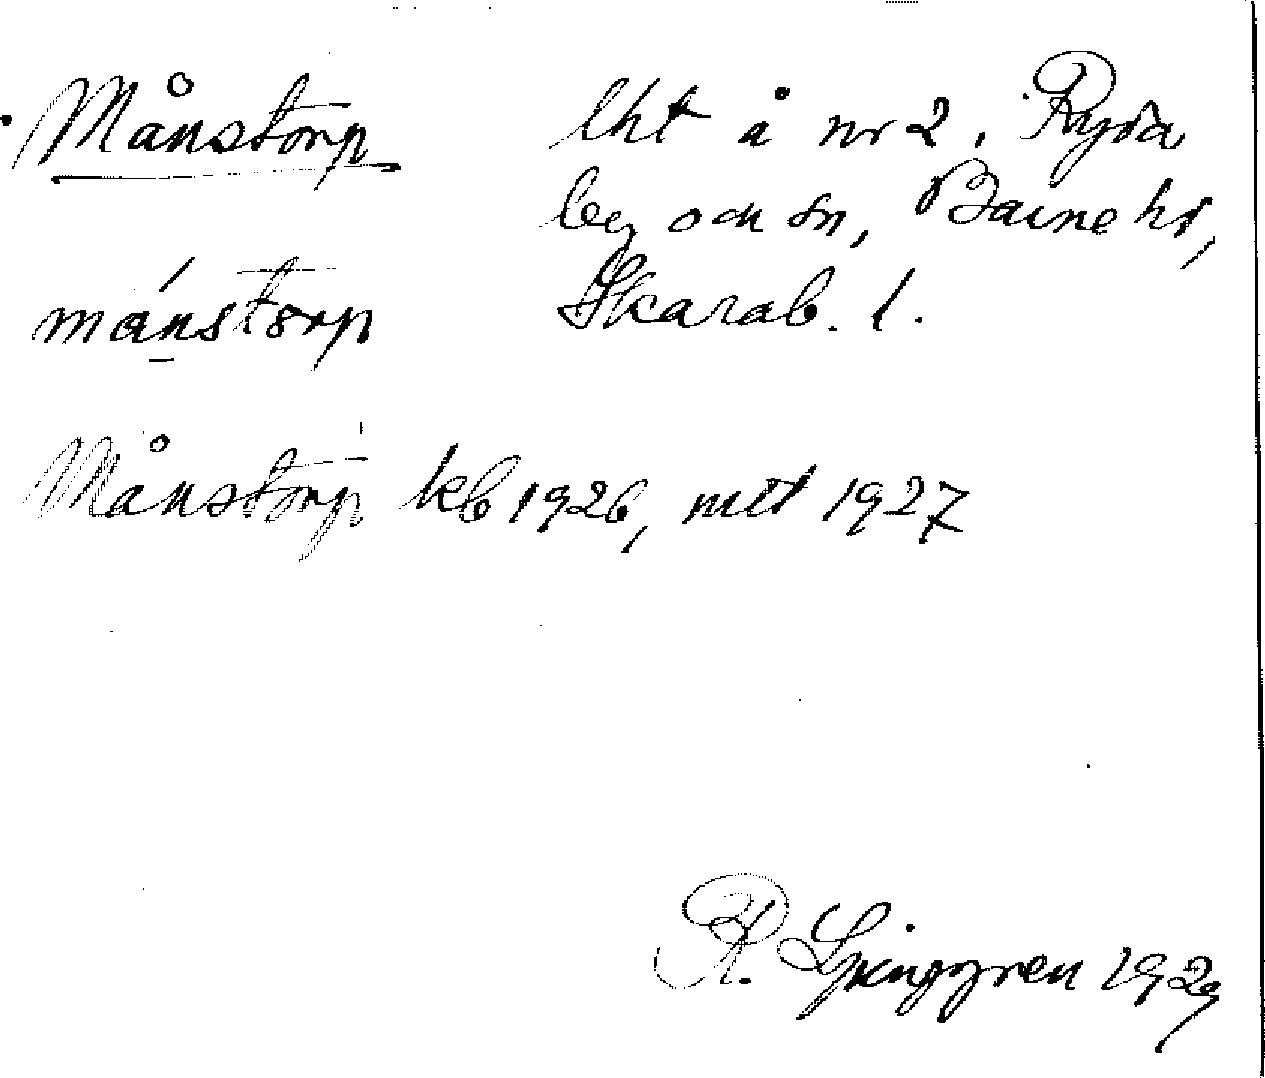 Månstorp
lht å nr 2, Ryda
by och sn, Barne hd,
Skarab. l.
månstorp
Månstorp kb 1926, mtl 1927
R. Ljunggren 1929